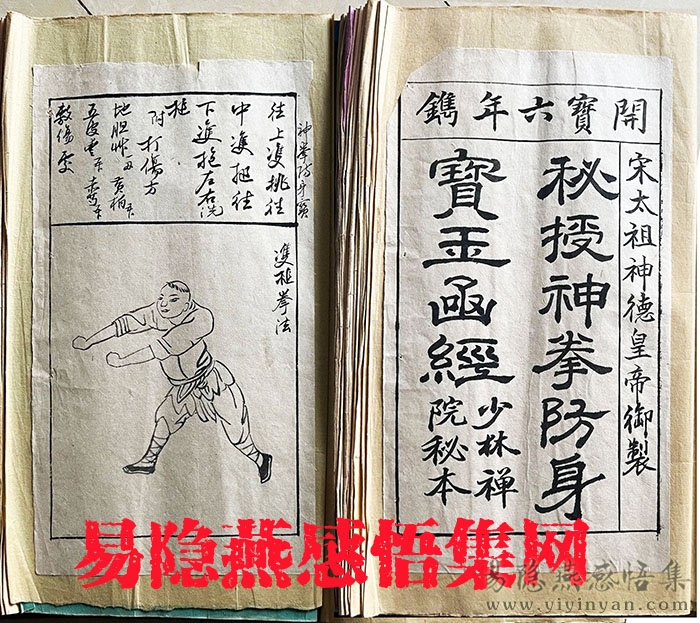 開寶六年鐫
宋太祖神德皇帝御製
秘授神拳防身
寶玉函經
少林禅
院秘本
神拳防身寶
往上進挑往
中進挺往
下進抱左右洗
附打傷方
敷傷處
進挺拳法
易隐燕感悟集网
易隐燕感悟集
www.yiyinyan.com